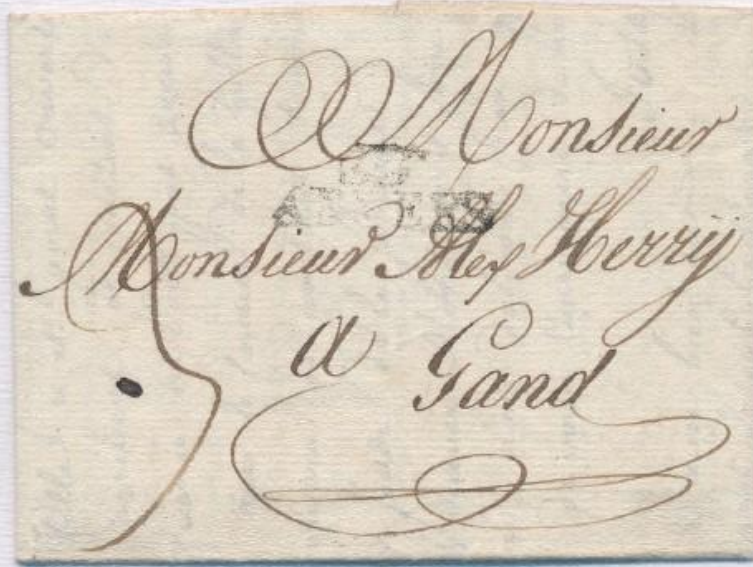 Monsieur
Monsieur Alex Herrÿ
a Gand
3